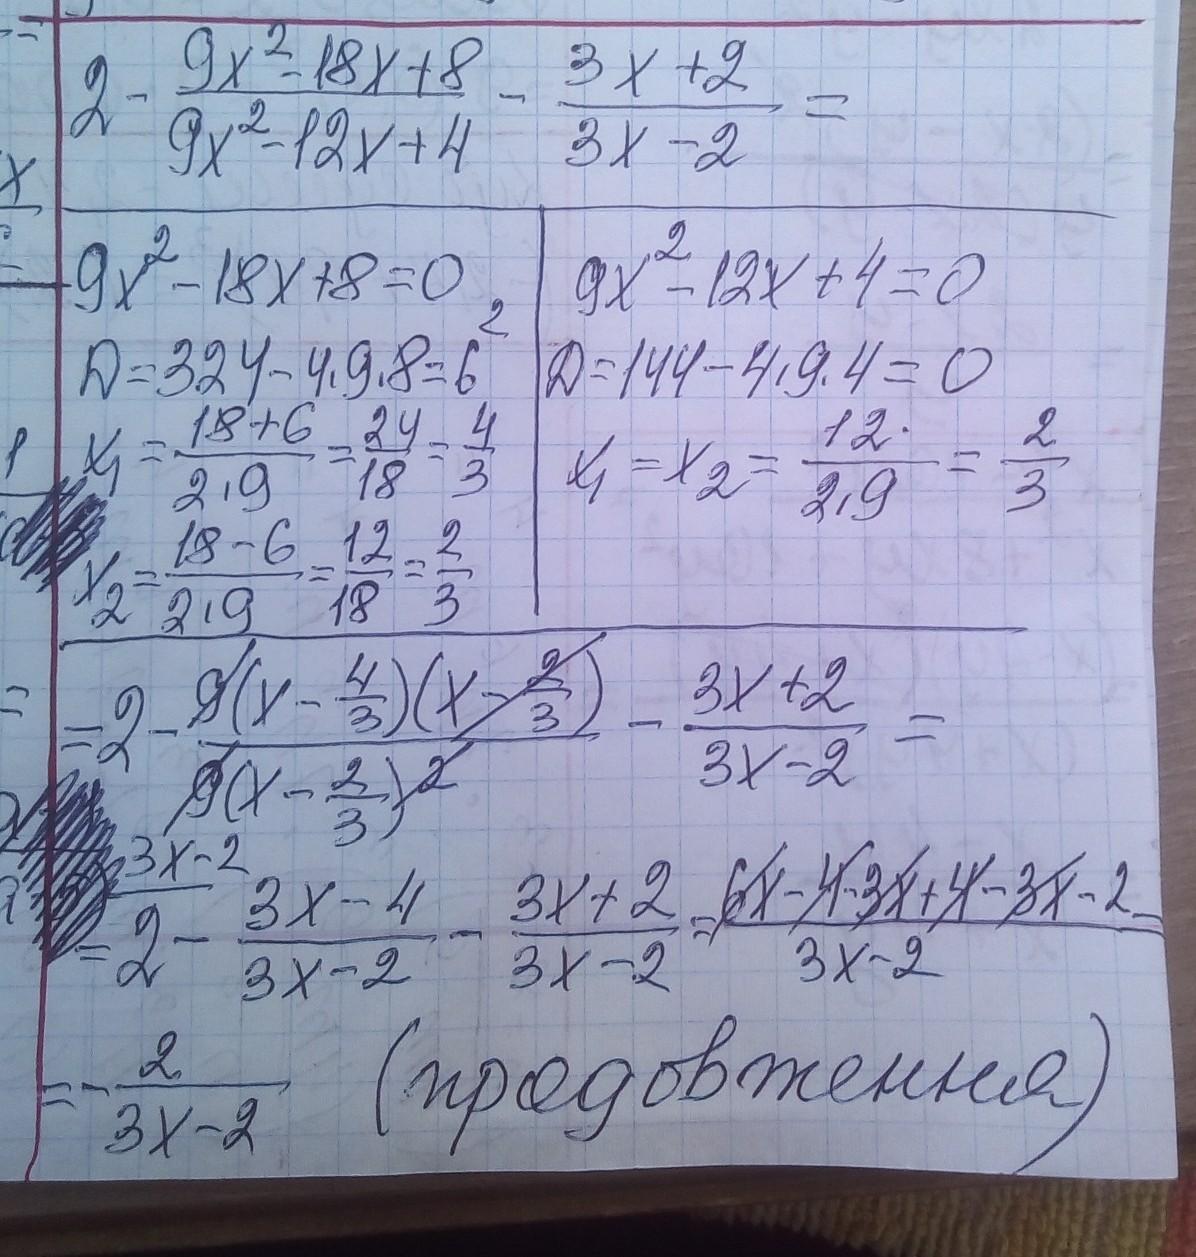 2 - \frac{9x^2-18x+8}{9x^2-12x+4} - \frac{3x+2}{3x-2} =
9x^2-18x+8=0
D=324-4·9·8=6^2
x_1=\frac{18+6}{2·9}=\frac{24}{18}=\frac{4}{3}
x_2=\frac{18-6}{2·9}=\frac{12}{18}=\frac{2}{3}
9x^2-12x+4=0
D=144-4·9·4=0
x_1=x_2=\frac{12}{2·9}=\frac{2}{3}
=2-\frac{9(x-\frac{4}{3})(x-\frac{2}{3})}{9(x-\frac{2}{3})^2}-\frac{3x+2}{3x-2}=
=\overset{3x-2}{2}-\frac{3x-4}{3x-2}-\frac{3x+2}{3x-2}=\frac{6x-4-3x+4-3x-2}{3x-2}=
=-\frac{2}{3x-2} (продовження)